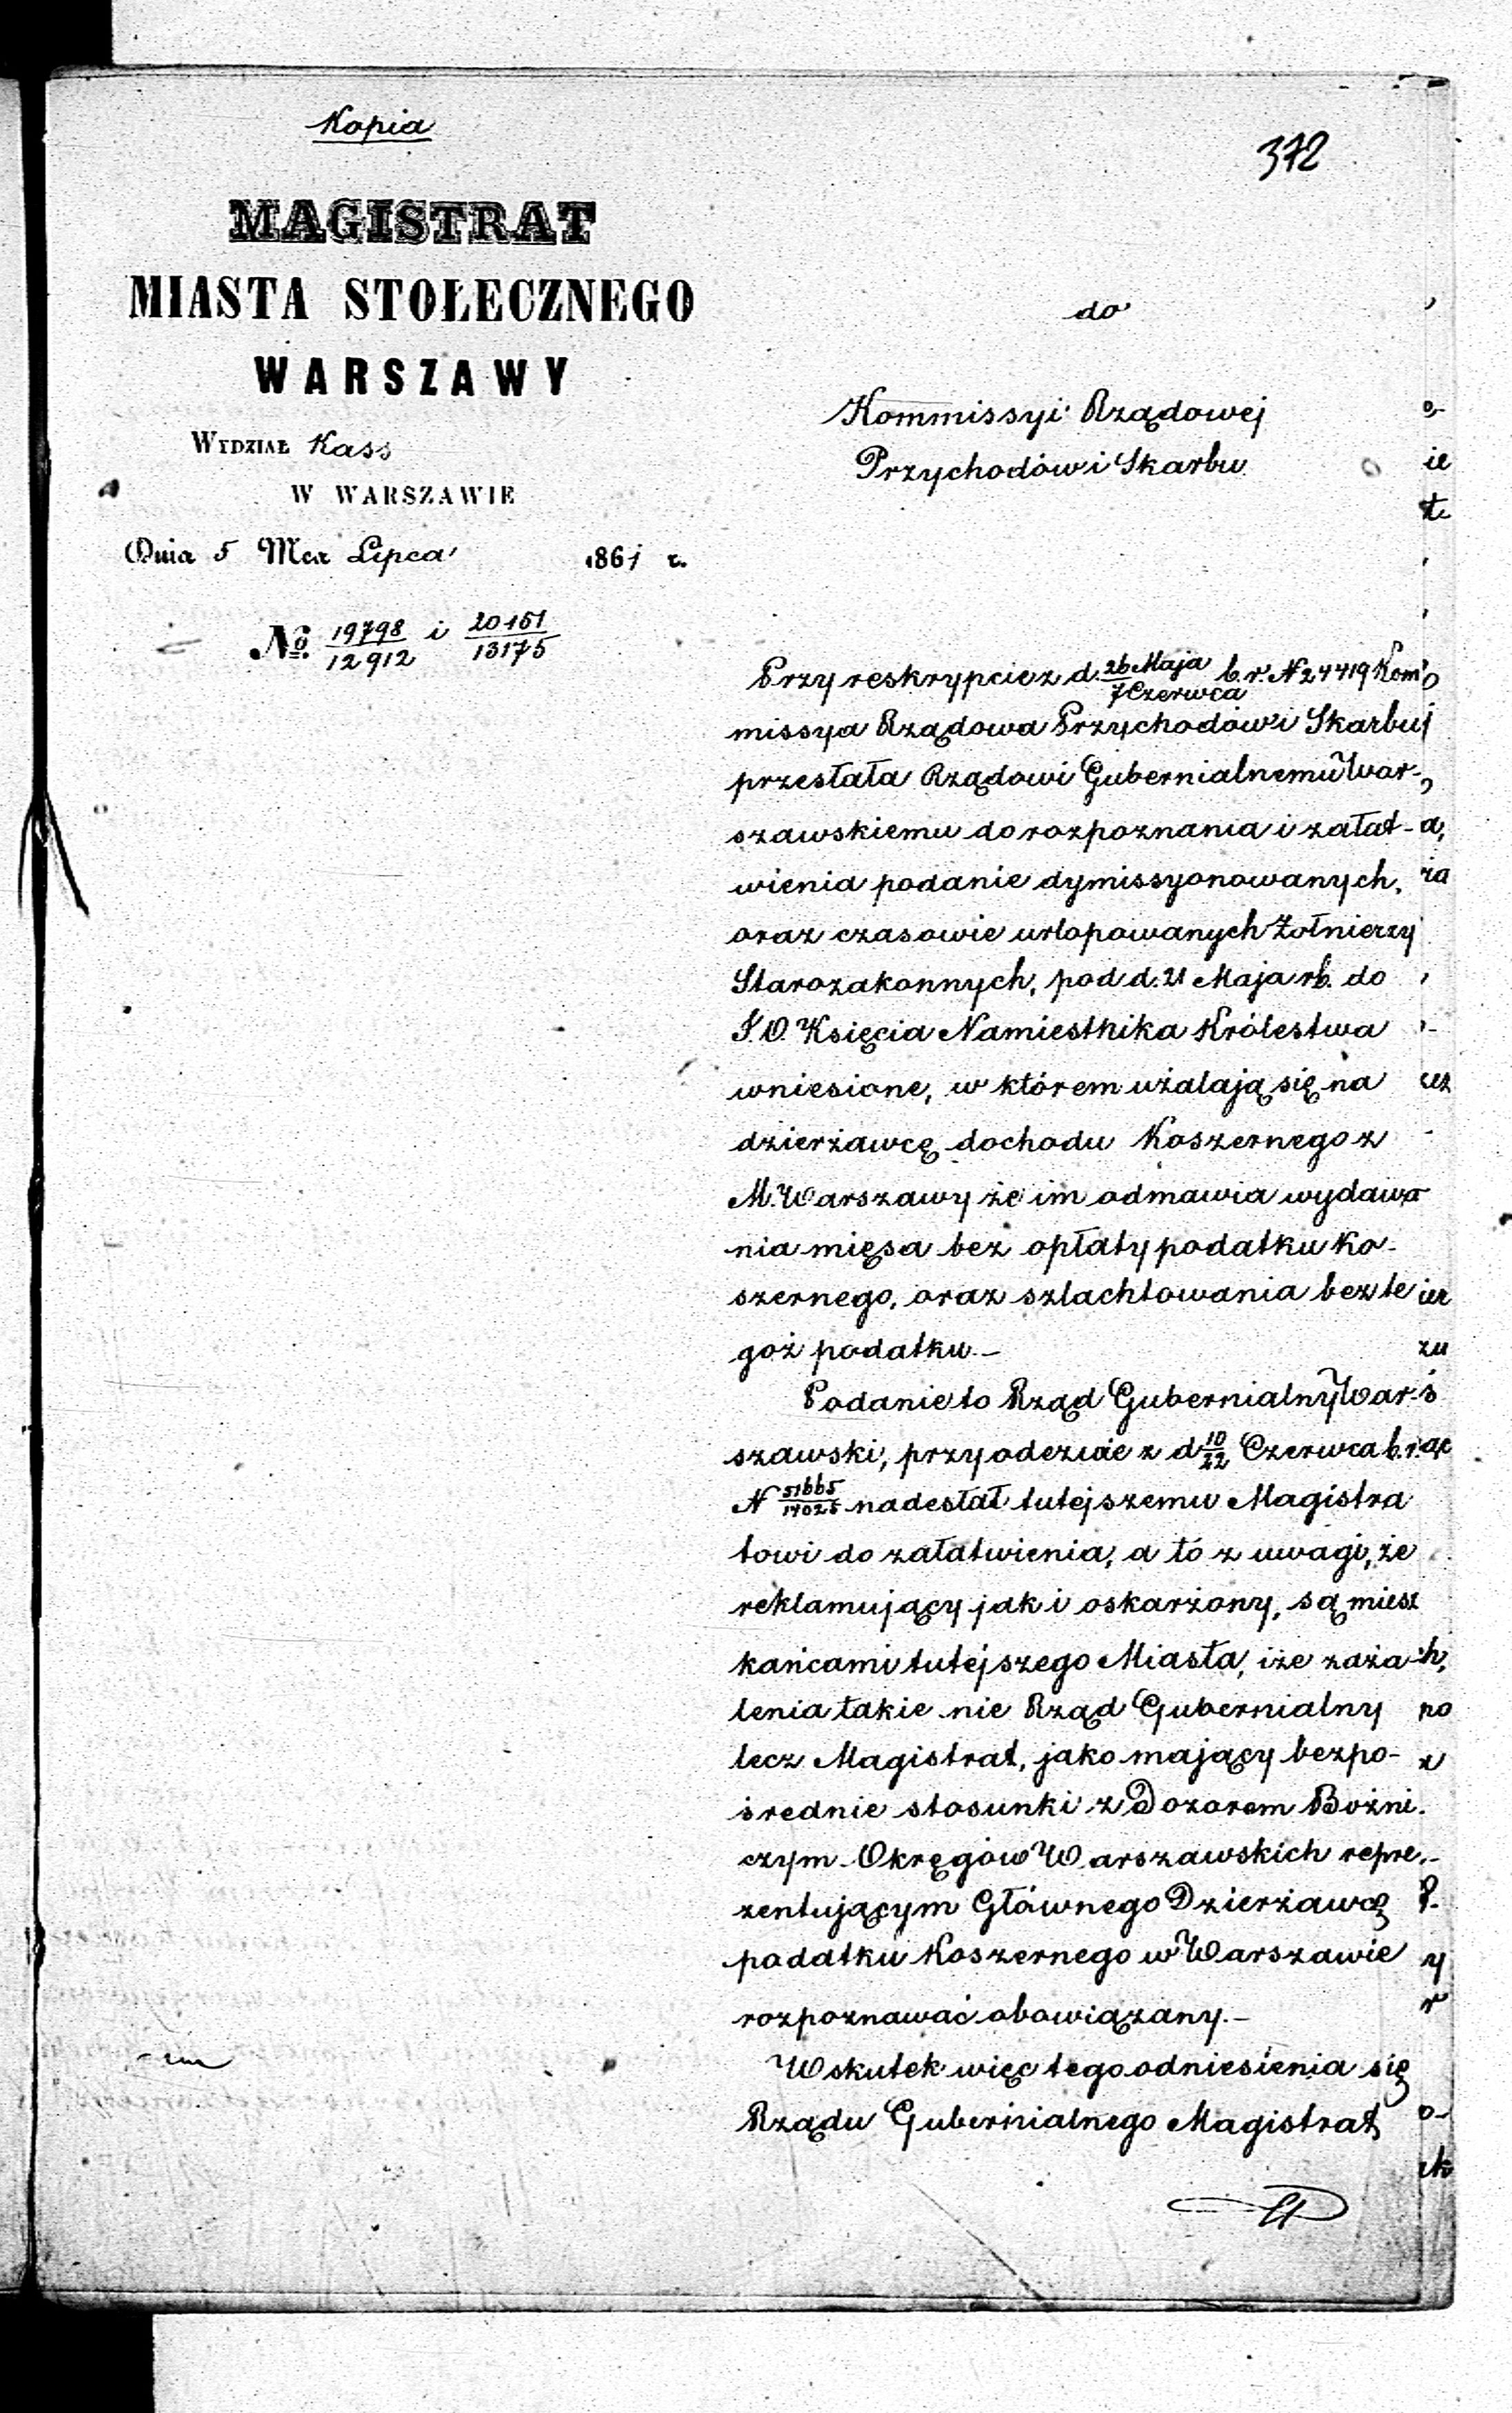 Kopia
372
MAGISTRAT
MIASTA STOŁECZNEGO
WARSZAWY
WYDZIAŁ Kass
W WARSZAWIE
Dnia 5 Mca Lipca 1861 r.
No. 19798/12912 i 20161/13175
do
Kommissyi Rządowej
Przychodów i Skarbu
Przy reskrypcie z d. 26 Maja/7 Czerwca b. r. N 24419 Kom
missya Rządowa Przychodów i Skarbu
przesłała Rządowi Gubernialnemu War-
szawskiemu do rozpoznania i załat-
wienia podanie dymissyonowanych,
oraz czasowie urlopowanych Żołnierzy
Starozakonnych, pod d. 21 Maja rb. do
J. O. Księcia Namiestnika Królestwa
wniesione, w którem użalają się na
dzierżawcę dochodu Koszernego z
M. Warszawy że im odmawia wydawa
nia mięsa bez opłaty podatku ko-
szernego, oraz szlachtowania bez te
goż podatku.-
Podanie to Rząd Gubernialny War-
szawski, przy odezwie z d 10/22 Czerwca b. r.
N 51665/14025 nadesłał tutejszemu Magistra
towi do załatwienia, a to z uwagi, że
reklamujący jak i oskarżony, są miesz
kańcami tutejszego Miasta, iże zaża
lenia takie nie Rząd Gubernialny
lecz Magistrat, jako mający bezpo-
średnie stosunki z Dozorem Bożni.
czym Okręgów Warszawskich repre.
zentującym Głównego Dzierżawcę
podatku Koszernego w Warszawie
rozpoznawać obowiązany.-
Wskutek więc tego odniesienia się
Rządu Gubernialnego Magistrat